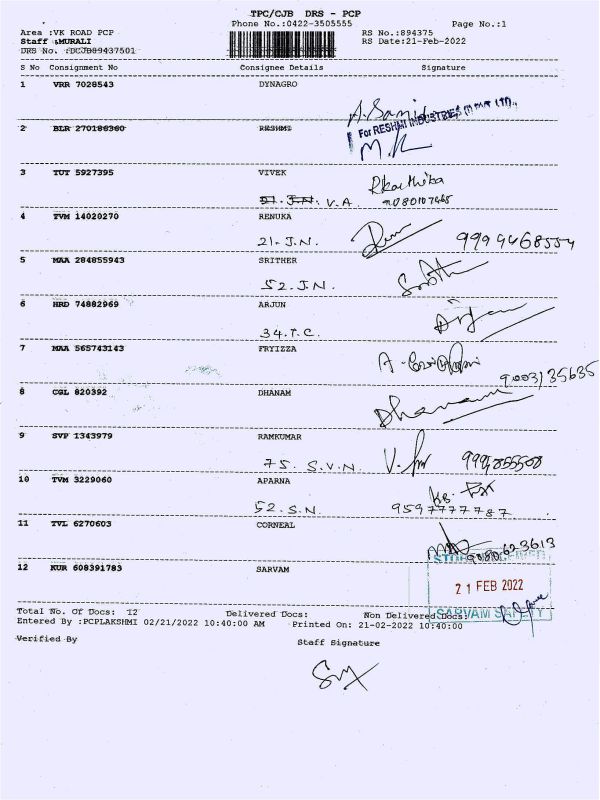 TPC/CJB DRS - PCP
Phone No.:0422-3505555 Page No.:1
Area :VK ROAD PCP RS No.:894375
Staff :MURALI RS Date:21-Feb-2022
DRS No. :DCJB89437501
S No Consignment No Consignee Details Signature
1 VRR 7028543 DYNAGRO
For RESHMI INDUSTRIES (I) PVT LTD.,
2 BLR 270186360 RESHMI
3 TUT 5927395 VIVEK
V.A.
4 TVM 14020270 RENUKA
21. J.N.
5 MAA 284855943 SRITHER
52. J.N.
6 HRD 74882969 ARJUN
34. T.C. Arjun
7 MAA 565743143 FRYIZZA
9003135635
8 CGL 820392 DHANAM
Dhanam
9 SVP 1343979 RAMKUMAR
75. S.V.N.
10 TVM 3229060 APARNA
52. S.N. 9597777787
11 TVL 6270603 CORNEAL
12 KUR 608391783 SARVAM
21 FEB 2022
SARVAM SAFETY
Total No. Of Docs: 12 Delivered Docs: Non Delivered Docs:
Entered By :PCPLAKSHMI 02/21/2022 10:40:00 AM Printed On: 21-02-2022 10:40:00
Verified By Staff Signature